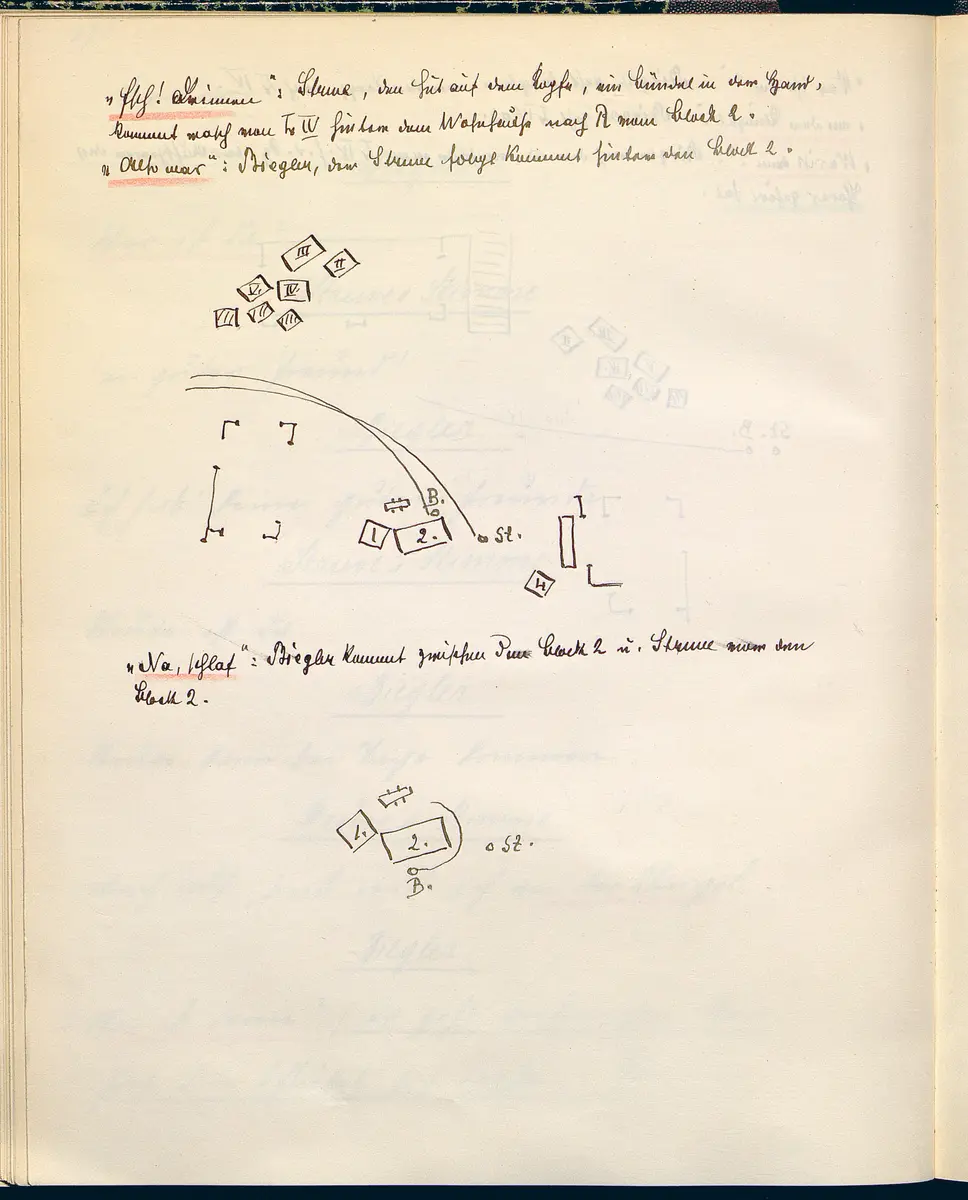 Drinnen": Strune, den Hut auf dem Kopfe, ein Bündel in der Hand,
kommt rasch von Tr IV hinter dem Wohnhause nach R vom Block 2.
„Also was": Biegler, der Strune folgt kommt hinter den Block 2.
III II
V. IV.
VII VIII
B.
1 2. St.
4
„Na, schlaf": Biegler kommt zwischen dem Block 2 u. Strune vor den
Block 2.
1. 2. St.
B.